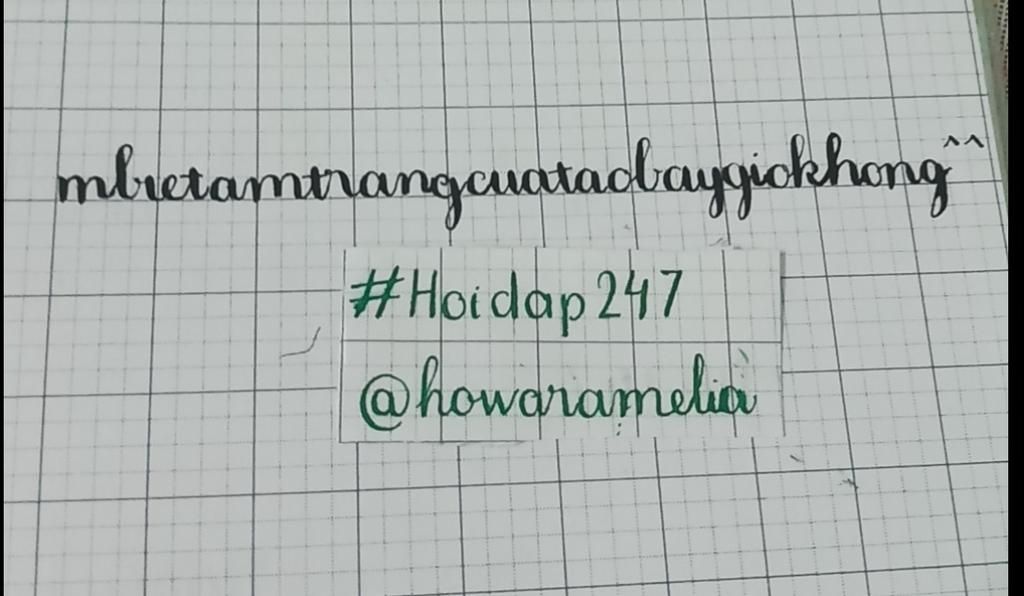 mbietamtrangcuataobaygiokhong^^
#Hoidap247
@howaramelia